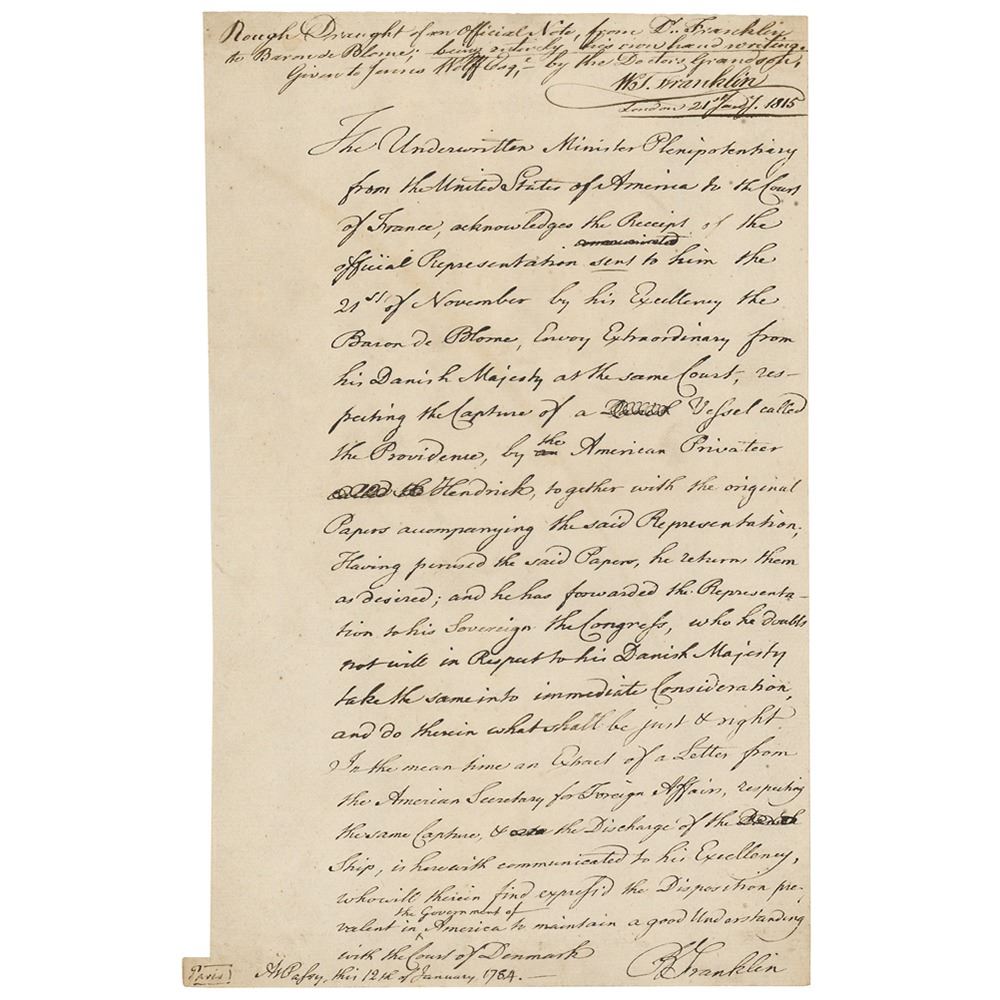 Rough Draught of an Official Note, from Dr. Franklin
to Baron de Blome; being entirely his own hand writing.
Given to James Wolff Esqr. by the Doctors Grandson,
Wm. T. Franklin
London 21st Jany. 1815
The Underwritten Minister Plenipotentiary
from the United States of America to the Court
of France, acknowledges the Receipt of the
communicated
official Representation sent to him the
21st of November by his Excellency the
Baron de Blome, Envoy Extraordinary from
his Danish Majesty at the same Court, res-
pecting the Capture of a Danish Vessel called
the
the Providence, by an American Privateer
called the Hendrick, together with the original
Papers accompanying the said Representation;
Having perused the said Papers, he returns them
as desired; and he has forwarded the Representa-
tion to his Sovereign the Congress, who he doubts
not will in Respect to his Danish Majesty
take the same into immediate Consideration,
and do therein what shall be just & right
In the mean time an Extract of a Letter from
the American Secretary for Foreign Affairs, respecting
the same Capture, & the Discharge of the Danish
Ship, is herewith communicated to his Excellency,
who will therein find express'd the Disposition pre-
the Government of
valent in America to maintain a good Understanding
with the Court of Denmark
B Franklin
At Passy, this 12th of January 1784.